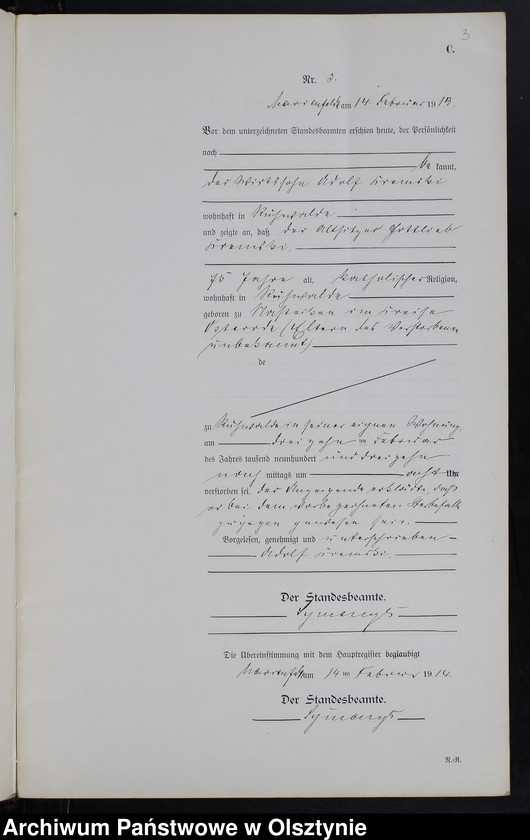 3
C.
Nr. 3.
Marienfelde am 14. Februar 1913.
Vor dem unterzeichneten Standesbeamten erschien heute, der Persönlichkeit
nach
be kannt,
der Wirtssohn Adolf Kremski
wohnhaft in Ruhwalde
und zeigte an, daß der Altsitzer Gottlieb
Kremski.
75 Jahre alt, katholischer Religion,
wohnhaft in Ruhwalde
geboren zu im Kreise
Osterode (Eltern des Verstorbenen
unbekannt)
de
zu Ruhwalde in seiner eignen Wohnung,
am dreizehn ten Februar
des Jahres tausend neunhundert und dreizehn
nach mittags um acht Uhr
verstorben sei. Der Anzeigende erklärte, daß
er bei dem vorbezeichneten Sterbefalle
zugegen gewesen sei.
Vorgelesen, genehmigt und unterschrieben
Adolf Kremski.
Der Standesbeamte.
Die Übereinstimmung mit dem Hauptregister beglaubigt
Marienfelde am 14 ten Februar 1914.
Der Standesbeamte.
R.-R.
Archiwum Państwowe w Olsztynie